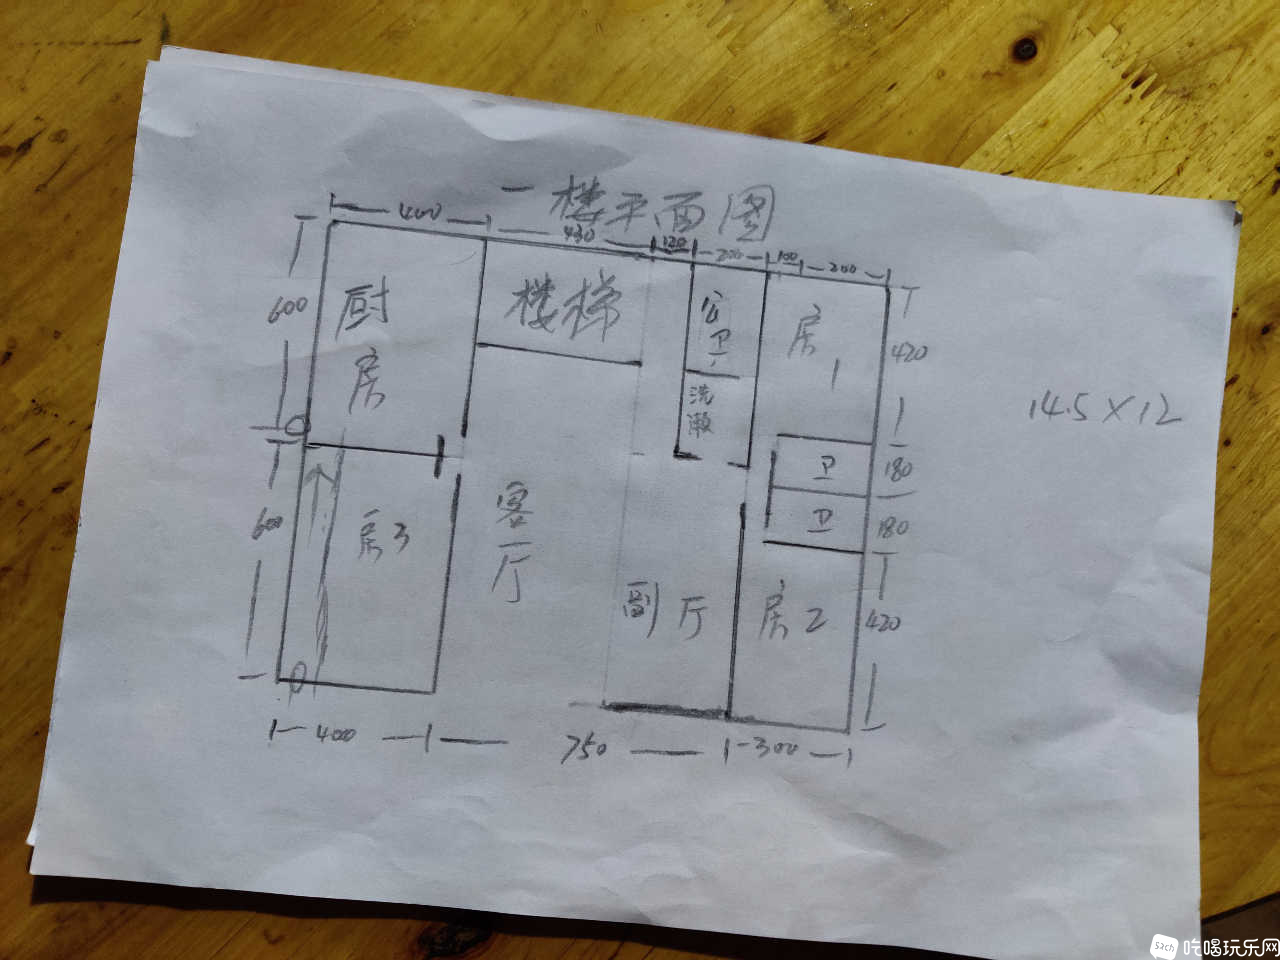 一楼平面图
400
430
120
200
100
200
600
厨房
楼梯
公卫
洗漱
房1
420
14.5×12
卫
180
卫
180
600
房3
客厅
副厅
房2
420
400
750
300
吃喝玩乐网